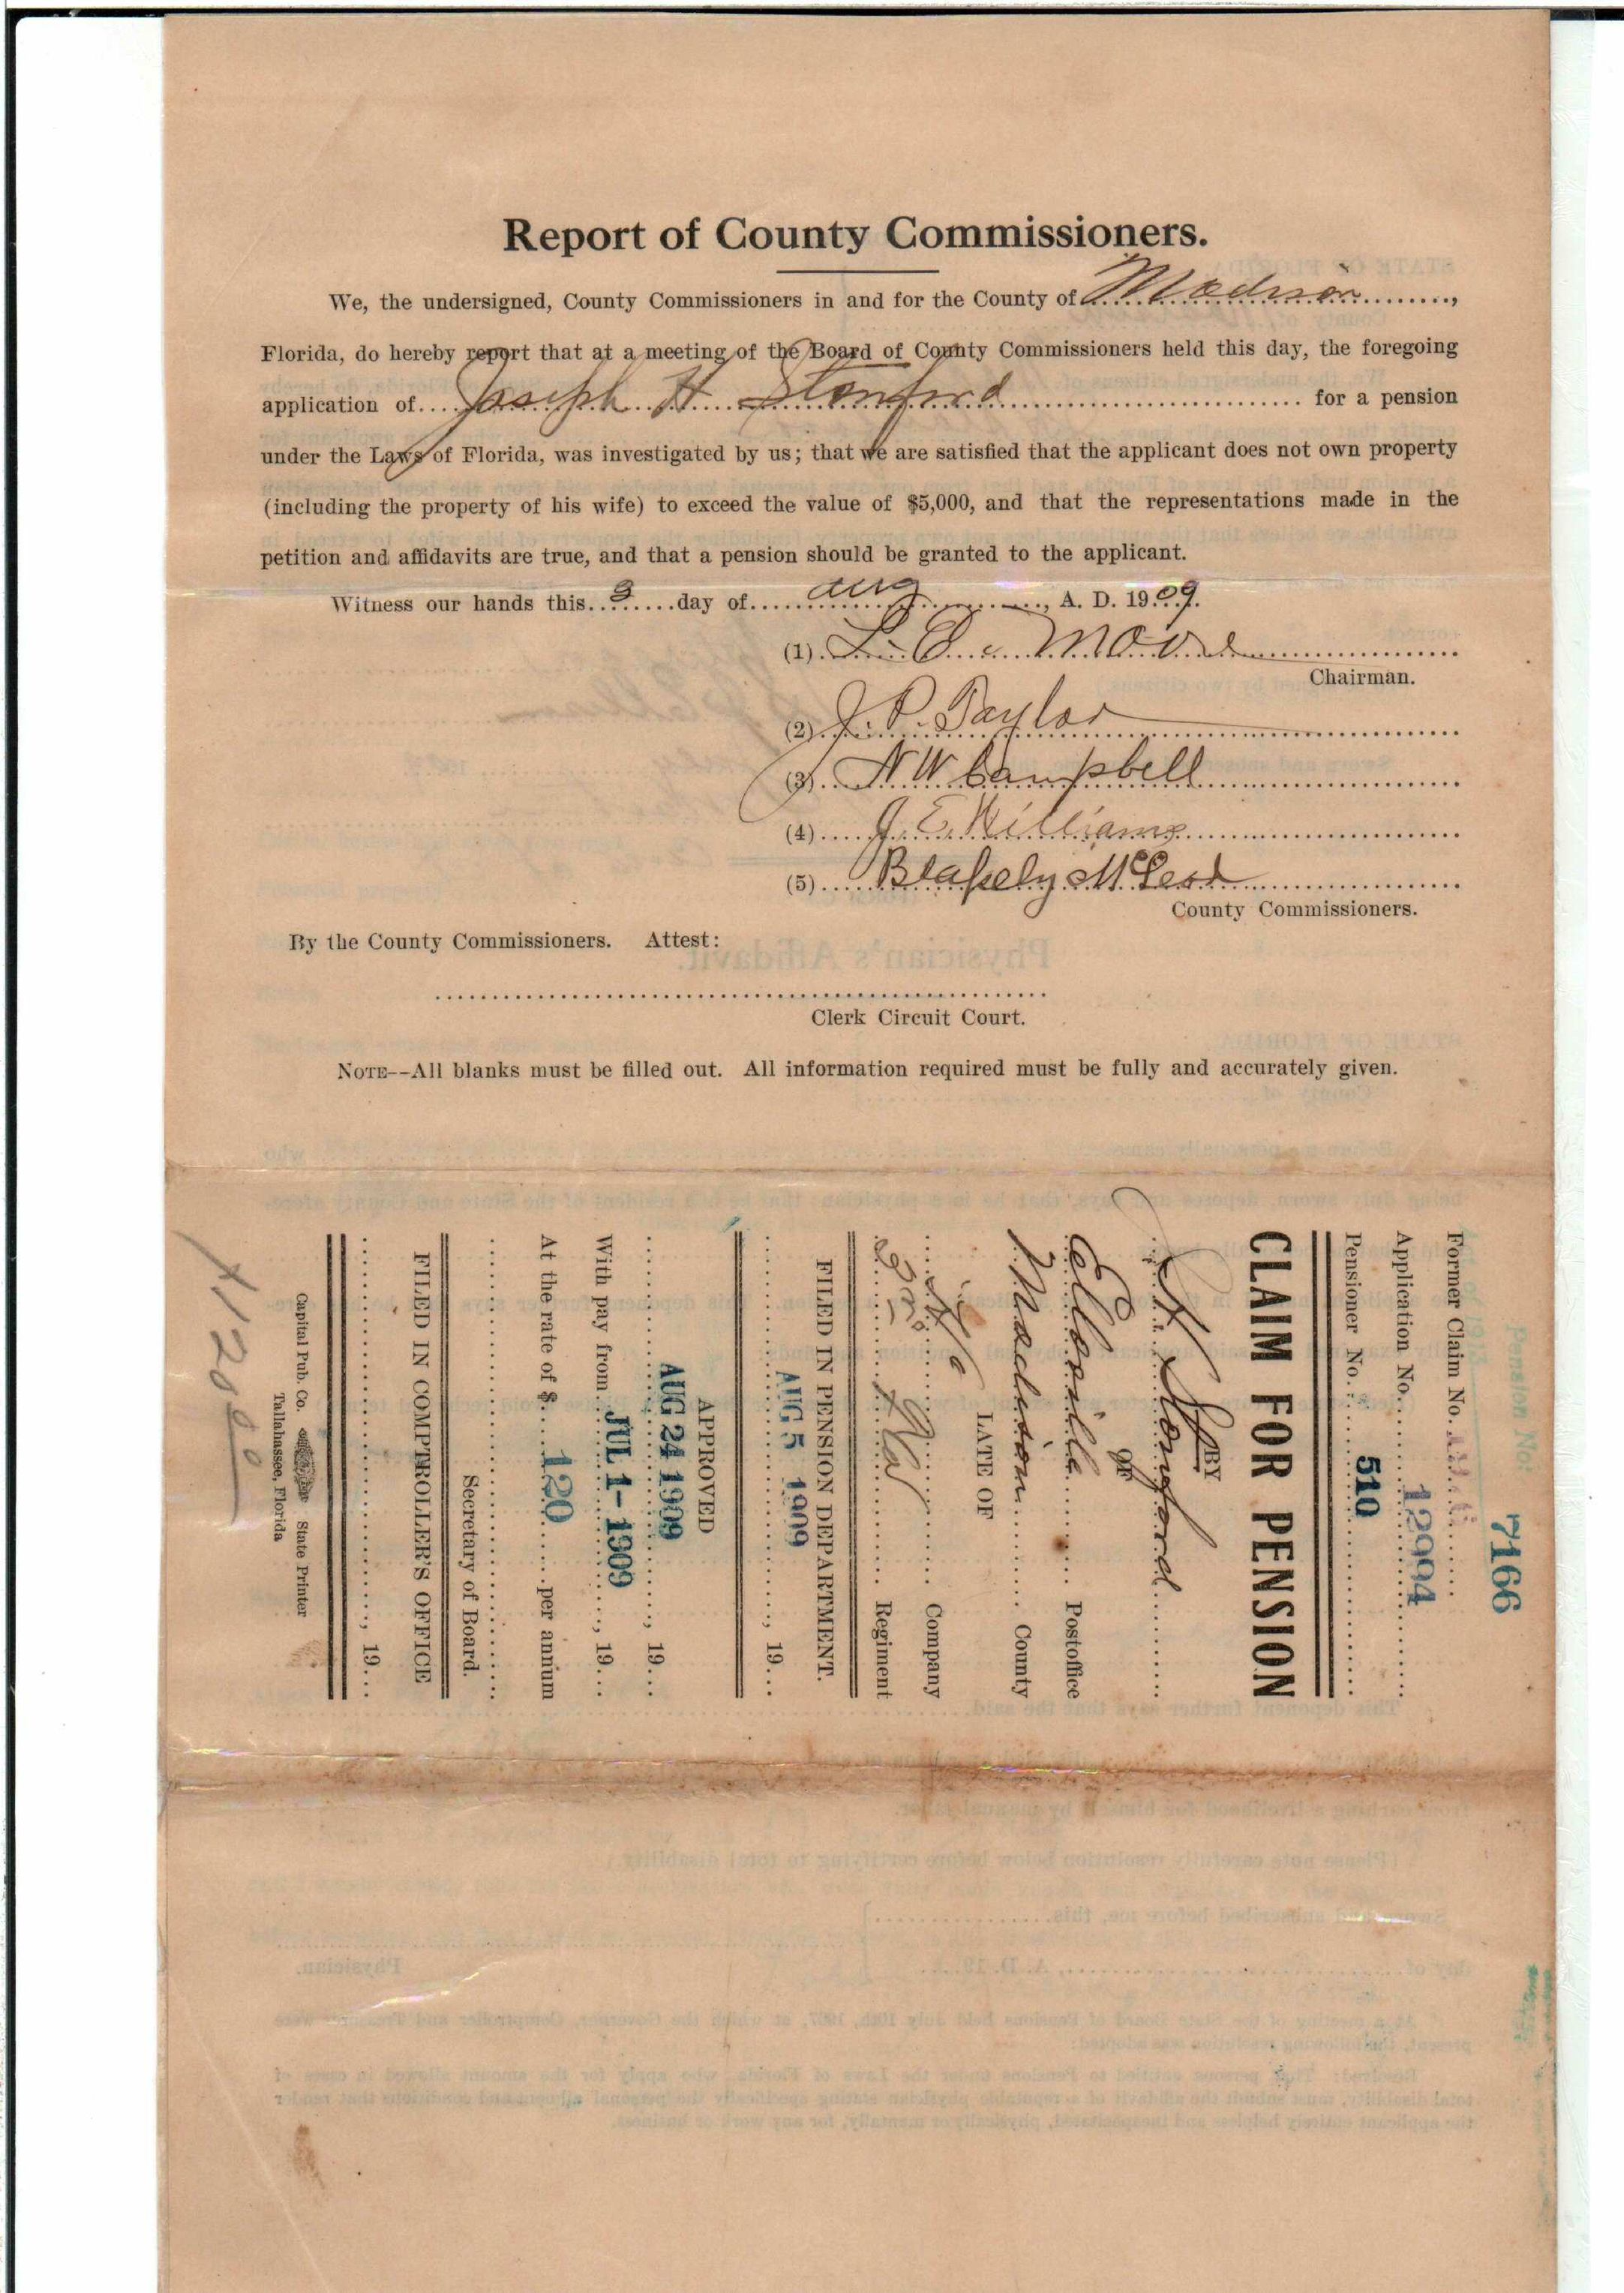 Report of County Commissioners.
We, the undersigned, County Commissioners in and for the County of Madison,
Florida, do hereby report that at a meeting of the Board of County Commissioners held this day, the foregoing
application of Joseph H Stanford for a pension
under the Laws of Florida, was investigated by us; that we are satisfied that the applicant does not own property
(including the property of his wife) to exceed the value of $5,000, and that the representations made in the
petition and affidavits are true, and that a pension should be granted to the applicant.
Witness our hands this 3 day of Aug, A. D. 1909.
(1) L. E. Moore
Chairman.
(2) J. P. Taylor
(3) N W Campbell
(4) J. E. Williams
(5) Blakely McLeod
County Commissioners.
By the County Commissioners. Attest:
Clerk Circuit Court.
NOTE--All blanks must be filled out. All information required must be fully and accurately given.
Pension No:
7166
Former Claim No.
Application No. 12994
Pensioner No. 510
CLAIM FOR PENSION
BY
J. H. Stanford
OF
Postoffice
Madison County
LATE OF
Company
Regiment
FILED IN PENSION DEPARTMENT.
AUG 5 1909, 19
APPROVED
AUG 24 1909, 19
With pay from JUL 1- 1909, 19
At the rate of $ 120 per annum
Secretary of Board.
FILED IN COMPTROLLER'S OFFICE
, 19
Capital Pub. Co. State Printer
Tallahassee, Florida
Physician's Affidavit.
STATE OF FLORIDA
County of
This deponent further says that the said
from earning a livelihood for himself by manual labor.
(Please note carefully resolution below before certifying to total disability.)
Sworn and subscribed before me, this
day of, A. D. 19
Physician.